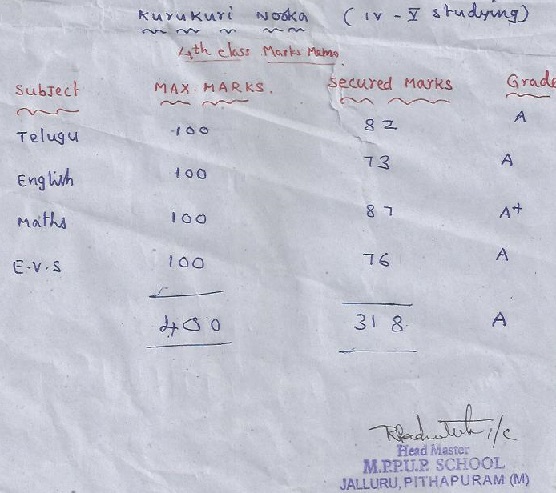 Kurukuri Nooka (IV - V studying)
4th class Marks Memo
Subject MAX MARKS. Secured Marks Grade
Telugu 100 82 A
English 100 73 A
Maths 100 87 A+
E.V.S 100 76 A
400 318 A
i/c
Head Master
M.P.P.U.P. SCHOOL
JALLURU, PITHAPURAM (M)